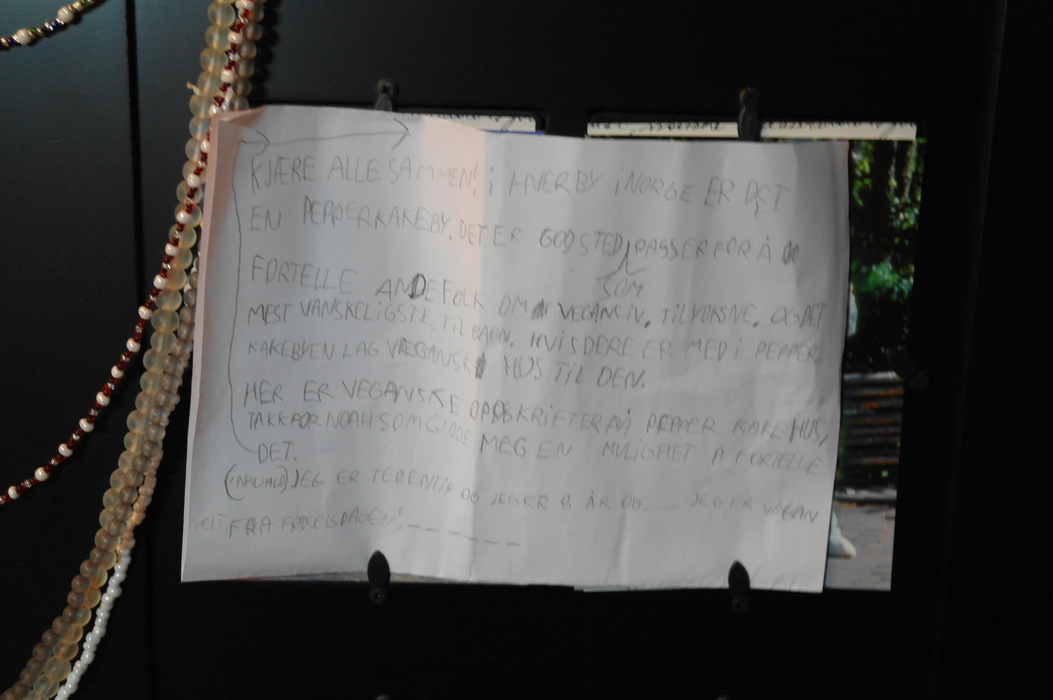 KJÆRE ALLE SAMMEN! i HVER BY i NORGE ER DET
EN PEPPERKAKEBY. DET ER GOD STED SOM PASSER FOR Å
FORTELLE ANDE FOLK OM VEGANCIV. TIL VOKSNE. OG DET
MEST VANSKELIGSTE, TIL BARN. HVIS DERE ER MED i PEPPER
KAKEBYEN LAG VEGANSK HUS TIL DEN.
HER ER VEGANSKE OPPSKRIFTER PÅ PEPPER KAKEHUS,
TAKK FOR NOAH SOM GIDDE MEG EN MULIGHET Å FORTELLE
DET.
JEG ER TERENTIY OG JEG ER 6 ÅR OG___ JEG ER VEGAN
HELT FRA FØDSELSDAGEN!